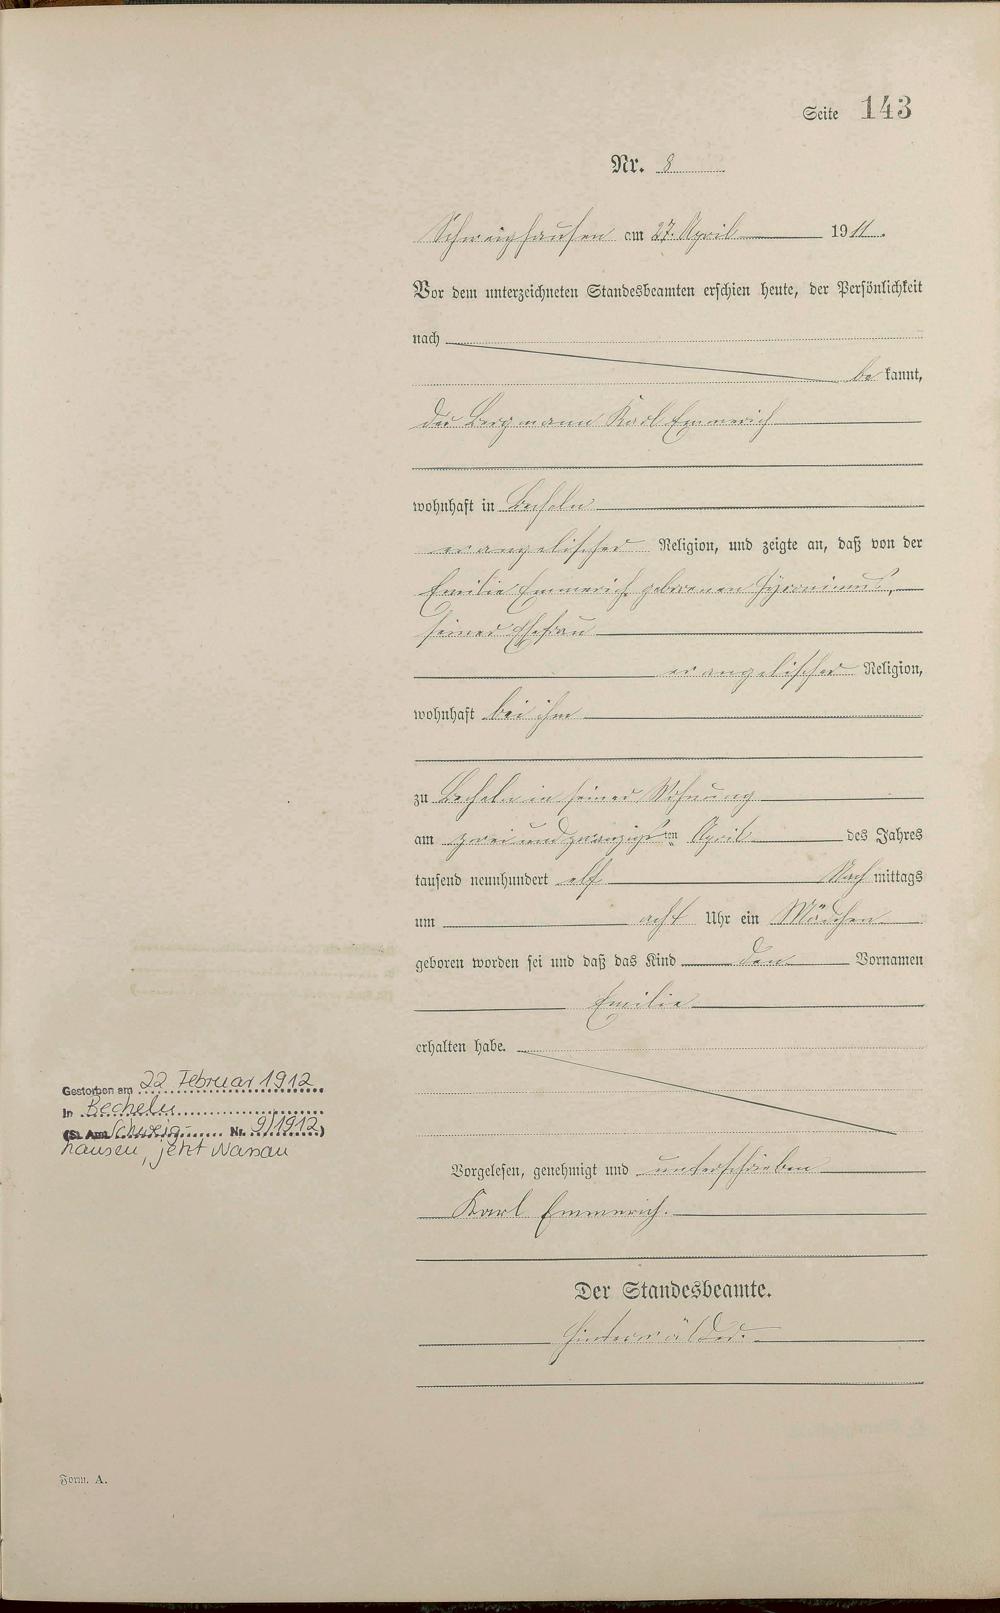 Seite 143
Nr. 8
Schweighausen am 27. April 1911.
Vor dem unterzeichneten Standesbeamten erschien heute, der Persönlichkeit
nach
be kannt,
der Bergmann Karl Emmerich
wohnhaft in Becheln
evangelischer Religion, und zeigte an, daß von der
Emilie Emmerich geborenen Hyronimus,
seiner Ehefrau
evangelischer Religion,
wohnhaft bei ihm
zu Becheln in seiner Wohnung
am zwei und zwanzigsten April des Jahres
tausend neunhundert elf Nach mittags
um acht Uhr ein Mädchen
geboren worden sei und daß das Kind den Vornamen
Emilie
erhalten habe.
Gestorben am 22 Februar 1912
in Becheln
(St. Amt Schweig- Nr. 9/1912)
hausen, jetzt Nassau
Vorgelesen, genehmigt und unterschrieben
Karl Emmerich.
Der Standesbeamte.
Hinterwälder.
Form. A.